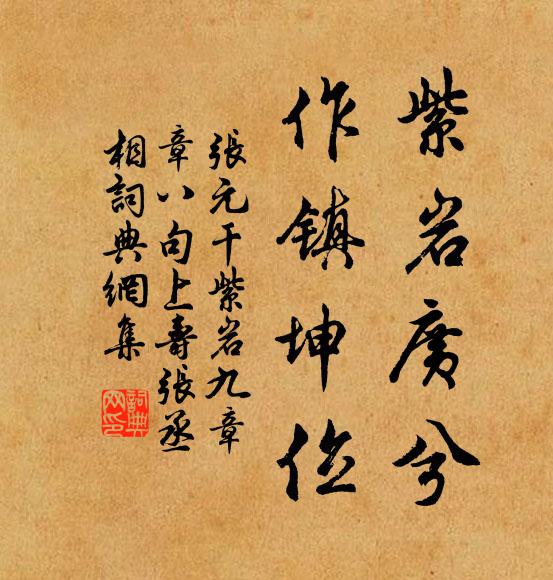 紫岩廣兮
作鎮坤位
張元干紫岩九章
章八句上壽張丞
相詞典網集
詞典
网印